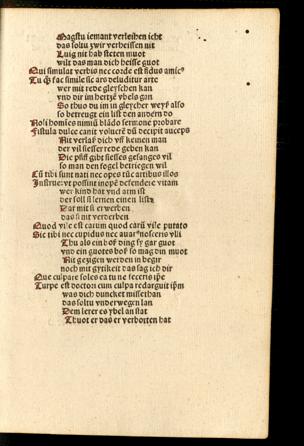 Magstu iemant verleihen icht
das soltu zwir verheissen nit
Luig nit hab steten muot
wilt das man dich heisse guot
Qui simulat verbis nec corde est fidus amicꝰ
Tu qͦꝫ fac simile sic ars deluditur arte
wer mit rede gleyschen kan
vnd dir im hertzē ybels gan
So thuo du im in gleycher weyß also
so betreugt ein list den andern do
Noli homīes nimiū blādo sermone probare
Fistula dulce canit volucrē dū decipit auceps
Nit verlaß dich vff keinen man
der vil siesser rede geben kan
Die pfiff gibt siesses gesanges vil
so man den fogel betriegen wil
Cū tibi sunt nati nec opes tūc artibus illos
Instrue vt possint inopē defendere vitam
wer kind hat vnd arm ist
der soll si lernen einen list
Dar mit si erwerben
das si nit verderben
Quod vile est carum quod carū vile putato
Sic tibi nec cupidus nec auarꝰ nosceris vlli
Thu als ein boß ding sy gar guot
vnd ein guotes boß so mag din muot
Nit gezigen werden in begir
noch mit gytikeit das sag ich dir
Que culpare soles ea tu ne feceris ip̄e
Turpe est doctori cum culpa redarguit ip̄m
was dich duncket missethan
das soltu vnderwegen lan
Dem lerer es ybel an stat
Thuot er das er verbotten hat